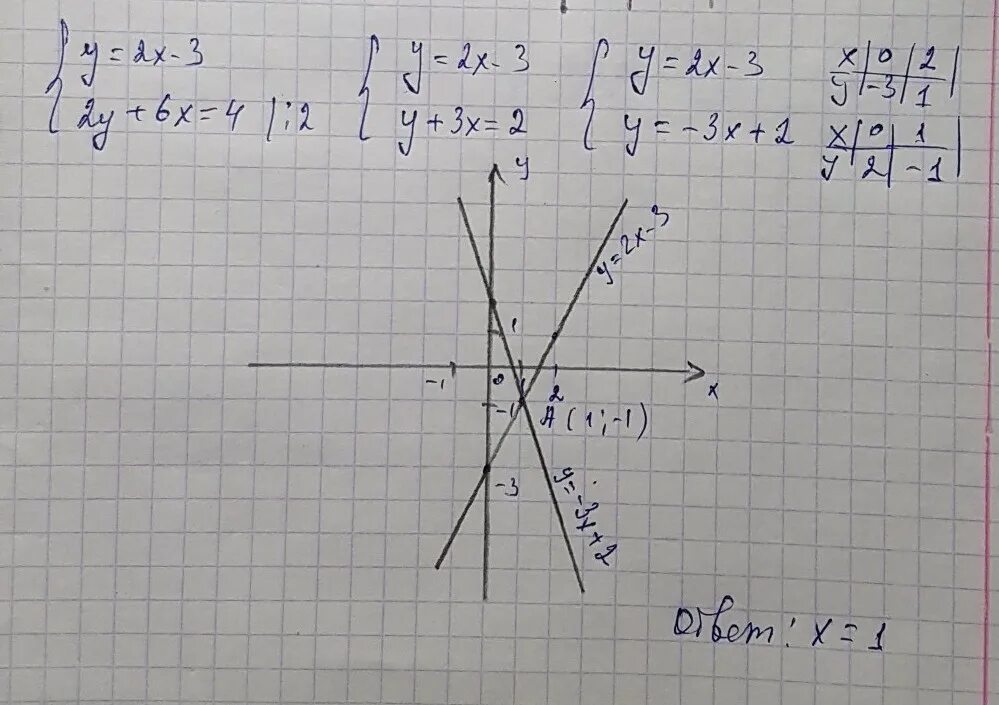 y = 2x - 3
2y + 6x = 4 | : 2
y = 2x - 3
y + 3x = 2
y = 2x - 3
y = -3x + 2
x | 0 | 2 |
y | -3 | 1 |
x | 0 | 1 |
y | 2 | -1 |
y
y = 2x - 3
1
-1
0
1
2
x
-1
A (1; -1)
-3
y = -3x + 2
Ответ: x = 1